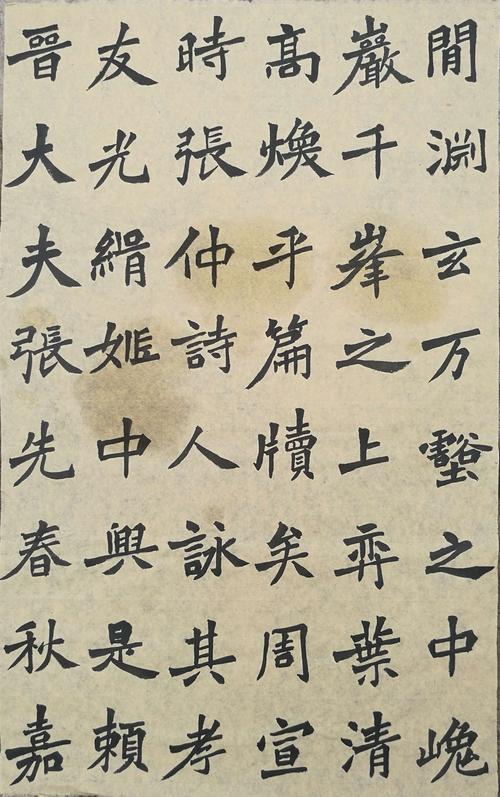 閒淵玄万壑之中巍
巖千峯之上弈葉清
高煥乎篇牘矣周宣
時張仲詩人詠其孝
友光緝姬中興是賴
晉大夫張先春秋嘉